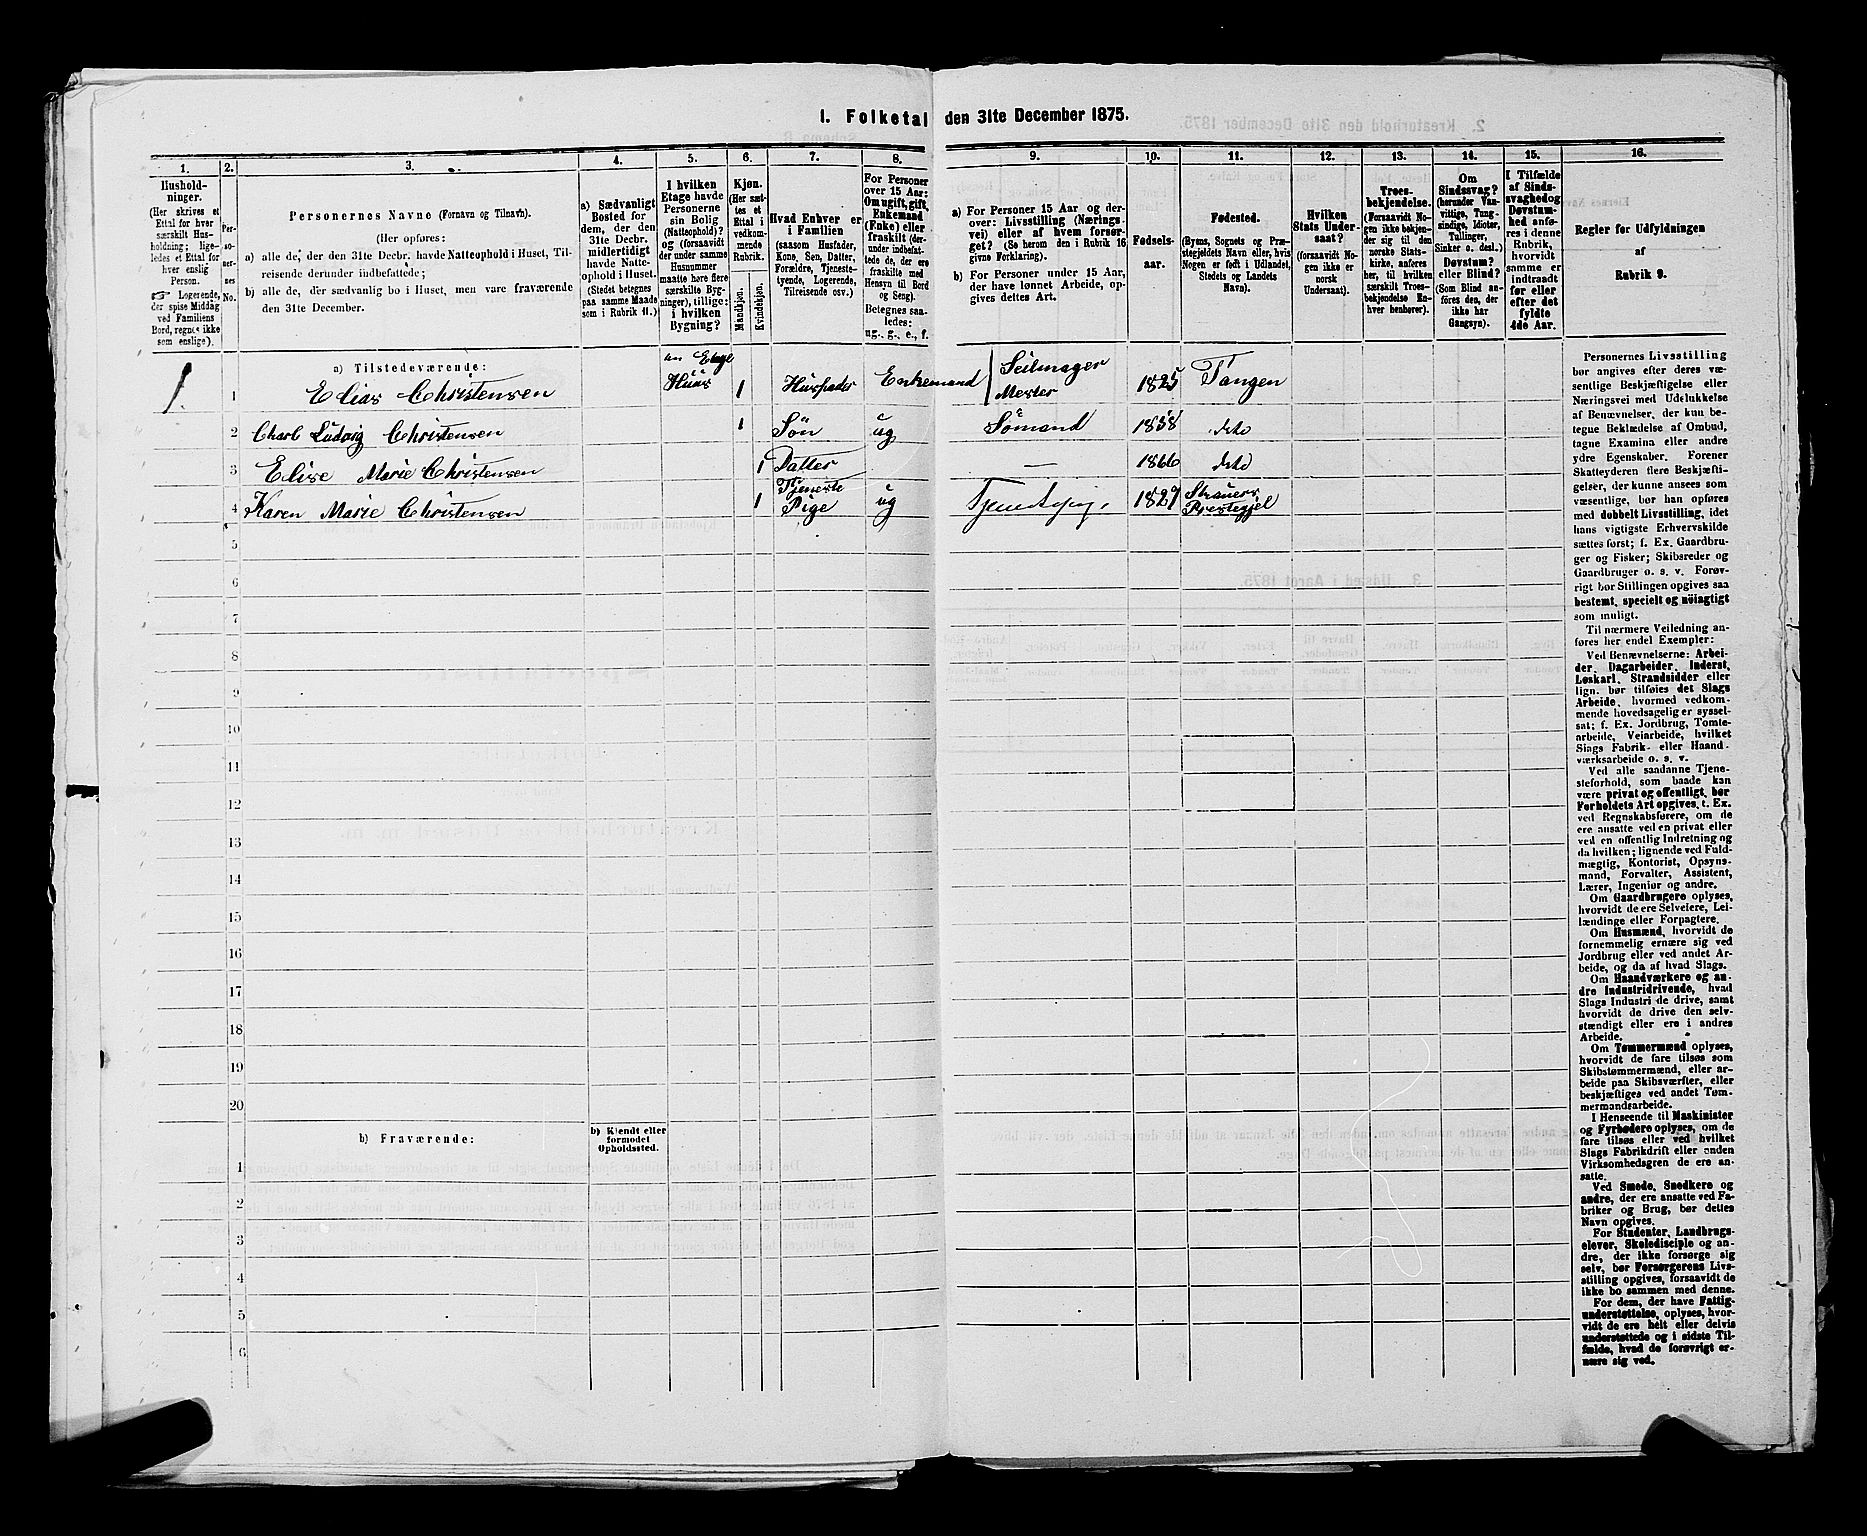 1. Folketal den 31te December 1875.
1. 2. 3. 4. 5. 6. 7. 8. 9. 10. 11. 12. 13. 14. 15. 16.
Hushold-
ninger.
(Her skrives et
Ettal for hver
særskilt Hus-
holdning; lige-
ledes et Ettal for
hver enslig
Person.
☞ Logerende,
der spise Middag
ved Familiens
Bord, regnes ikke
som enslige).
Per-
so-
ner-
nes
No.
Personernes Navne (Fornavn og Tilnavn).
(Her opføres:
a) alle de, der den 31te Decbr. havde Natteophold i Huset, Til-
reisende derunder indbefattede;
b) alle de, der sædvanlig bo i Huset, men vare fraværende
den 31te December.
a) Sædvanligt
Bosted for
dem, der den
31te Decbr.
midlertidigt
havde Natte-
ophold i Huset.
(Stedet betegnes
paa samme Maade
som i Rubrik 11.)
I hvilken
Etage havde
Personerne
sin Bolig
(Natteophold)?
og (forsaavidt
der under samme
Husnummer
maatte høre flere
særskilte Byg-
ninger), tillige:
i hvilken
Bygning?
Kjøn.
(Her sæt-
tes et
Ettal i
vedkom-
mende
Rubrik.
Mandkjøn.
Kvindekjøn.
Hvad Enhver er
i Familien
(saasom Husfader,
Kone, Søn, Datter,
Forældre, Tjeneste-
tyende, Logerende,
Tilreisende osv.)
For Personer
over 15 Aar:
Om ugift, gift,
Enkemand
(Enke) eller
fraskilt (der-
under indbefat-
tede de, der ere
fraskilte med
Hensyn til Bord
og Seng).
Betegnes saa-
ledes:
ug., g., e., f.
a) For Personer 15 Aar og der-
over: Livsstilling (Nærings-
vei) eller af hvem forsør-
get? (Se herom den i Rubrik 16
givne Forklaring).
b) For Personer under 15 Aar,
der have lønnet Arbeide, op-
gives dettes Art.
Fødsels-
aar.
Fødested.
(Byens, Sognets og Præ-
stegjeldets Navn eller, hvis
Nogen er født i Udlandet,
Stedets og Landets
Navn).
Hvilken
Stats Under-
saat?
(forsaavidt No-
gen ikke er
norsk
Undersaat).
Troes-
bekjendelse.
(Forsaavidt No-
gen ikke bekjen-
der sig til den
norske Stats-
kirke, anføres
her, til hvilken
særskilt Troes-
bekjendelse En-
hver henhører).
Om
Sindssvag?
(herunder Van-
vittige, Tung-
sindige, Idioter,
Tullinger,
Sinker o. desl.)
Døvstum?
eller Blind?
(Som Blind an-
føres den, der
ikke har
Gangsyn).
I Tilfælde
af Sinds-
svaghed og
Døvstum-
hed anfø-
res i denne
Rubrik,
hvorvidt
samme er
indtraadt
før eller
efter det
fyldte
4de Aar.
Regler for Udfyldningen
af
Rubrik 9.
a) Tilstedeværende:
1 1 Elias Christensen Huus 1 Husfader Enkemand Seilmager Mester 1825 Tangen
2 Charl Ludvig Christensen 1 Søn ug Sömand 1858 dito
3 Elise Marie Christensen 1 Datter — 1866 dito
4 Karen Marie Christensen 1 Tjeneste Pige ug 1829 Prestegjel
5
6
7
8
9
10
11
12
13
14
15
16
17
18
19
20
b) Fraværende:
b) Kjendt eller
formodet
Opholdssted.
1
2
3
4
5
6
Personernes Livsstilling
bør angives efter deres væ-
sentlige Beskjæftigelse eller
Næringsvei med Udelukkelse
af Benævnelser, der kun be-
tegne Beklædelse af Ombud,
tagne Examina eller andre
ydre Egenskaber. Forener
Skatteyderen flere Beskjæfti-
gelser, der kunne ansees som
væsentlige, bør han opføres
med dobbelt Livsstilling, idet
hans vigtigste Erhvervskilde
sættes først; f. Ex. Gaardbru-
ger og Fisker; Skibsreder og
Gaardbruger o. s. v. Forøv-
rigt bør Stillingen opgives saa
bestemt, specielt og nöiagtigt
som muligt.
Til nærmere Veiledning an-
føres her endel Exempler:
Ved Benævnelserne: Arbei-
der, Dagarbeider, Inderst,
Løskarl, Strandsidder eller
lign. bør tilføies det Slags
Arbeide, hvormed vedkom-
mende hovedsagelig er syssel-
sat; f. Ex. Jordbrug, Tomte-
arbeide, Veiarbeide, hvilket
Slags Fabrik- eller Haand-
værksarbeide o. s. v.
Ved alle saadanne Tjene-
steforhold, som baade kan
være privat og offentligt, bør
Forholdets Art opgives, t. Ex.
ved Regnskabsførere, om de
ere ansatte ved en privat eller
ved en offentlig Indretning og
da hvilken; lignende ved Fuld-
mægtig, Kontorist, Opsyns-
mand, Forvalter, Assistent,
Lærer, Ingeniør og andre.
Om Gaardbrugere oplyses,
hvorvidt de ere Selveiere, Lei-
lændinge eller Forpagtere.
Om Husmænd, hvorvidt de
fornemmelig ernære sig ved
Jordbrug eller ved andet Ar-
beide, og da af hvad Slags.
Om Haandværkere og an-
dre Industridrivende, hvad
Slags Industri de drive, samt
hvorvidt de drive den selv-
stændigt eller ere i andres
Arbeide.
Om Tømmermænd oplyses,
hvorvidt de fare tilsøs som
Skibstømmermænd, eller ar-
beide paa Skibsværfter, eller
beskjæftiges ved andet Tøm-
mermandsarbeide.
I Henseende til Maskinister
og Fyrbødere oplyses, om de
fare tilsøs eller ved hvilket
Slags Fabrikdrift eller anden
Virksomhedsgren de ere an-
satte.
Ved Smede, Snedkere og
andre, der ere ansatte ved Fa-
briker og Brug, bør dettes
Navn opgives.
For Studenter, Landbrugs-
elever, Skoledisciple og an-
dre, der ikke forsørge sig
selv, bør Forsørgerens Livs-
stilling opgives, forsaavidt de
ikke bo sammen med denne.
For dem, der have Fattig-
understøttelse, oplyses, hvor-
vidt de ere helt eller delvis
understøttede og i sidste Til-
fælde, hvad de forøvrigt er-
nære sig ved.